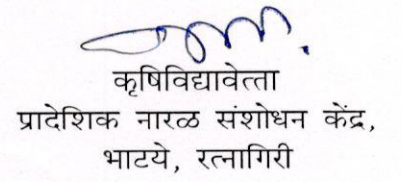 कृषिविद्यावेत्ता
प्रादेशिक नारळ संशोधन केंद्र,
भाटये, रत्नागिरी